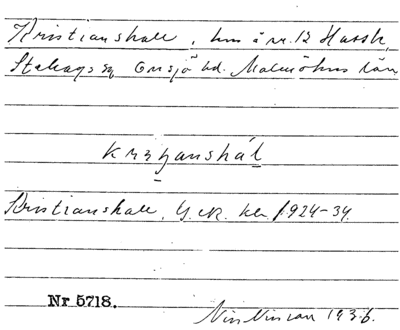 Kristianshall, hm å nr. 12 Hassle
Stehags sn Onsjö hd. Malmöhus län
krsyanshál
Kristianshall, G. eK. kbr. f. 924-34.
Nr 5718.
1936.